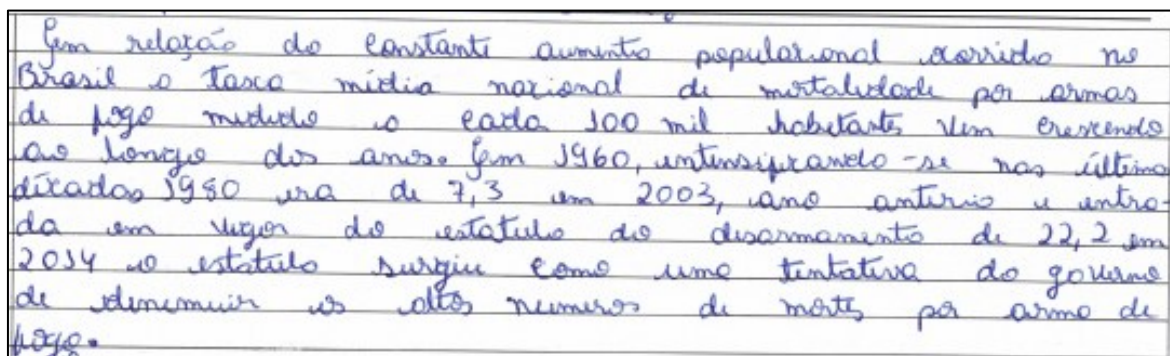 Em relação do constante aumento populacional ocorrido no
Brasil a taxa mídia nacional de mortalidade por armas
de fogo medido a cada 100 mil habitantes vem crescendo
ao longo dos anos. Em 1960, intensificando-se nas última
décadas 1980 era de 7,3 em 2003, ano anterio e entra-
da em vigor do estatulo do desarmamento de 22,2 em
2014 o estatulo surgiu como uma tentativa do governo
de denimuir os altos numeros de mortes por arma de
fogo.